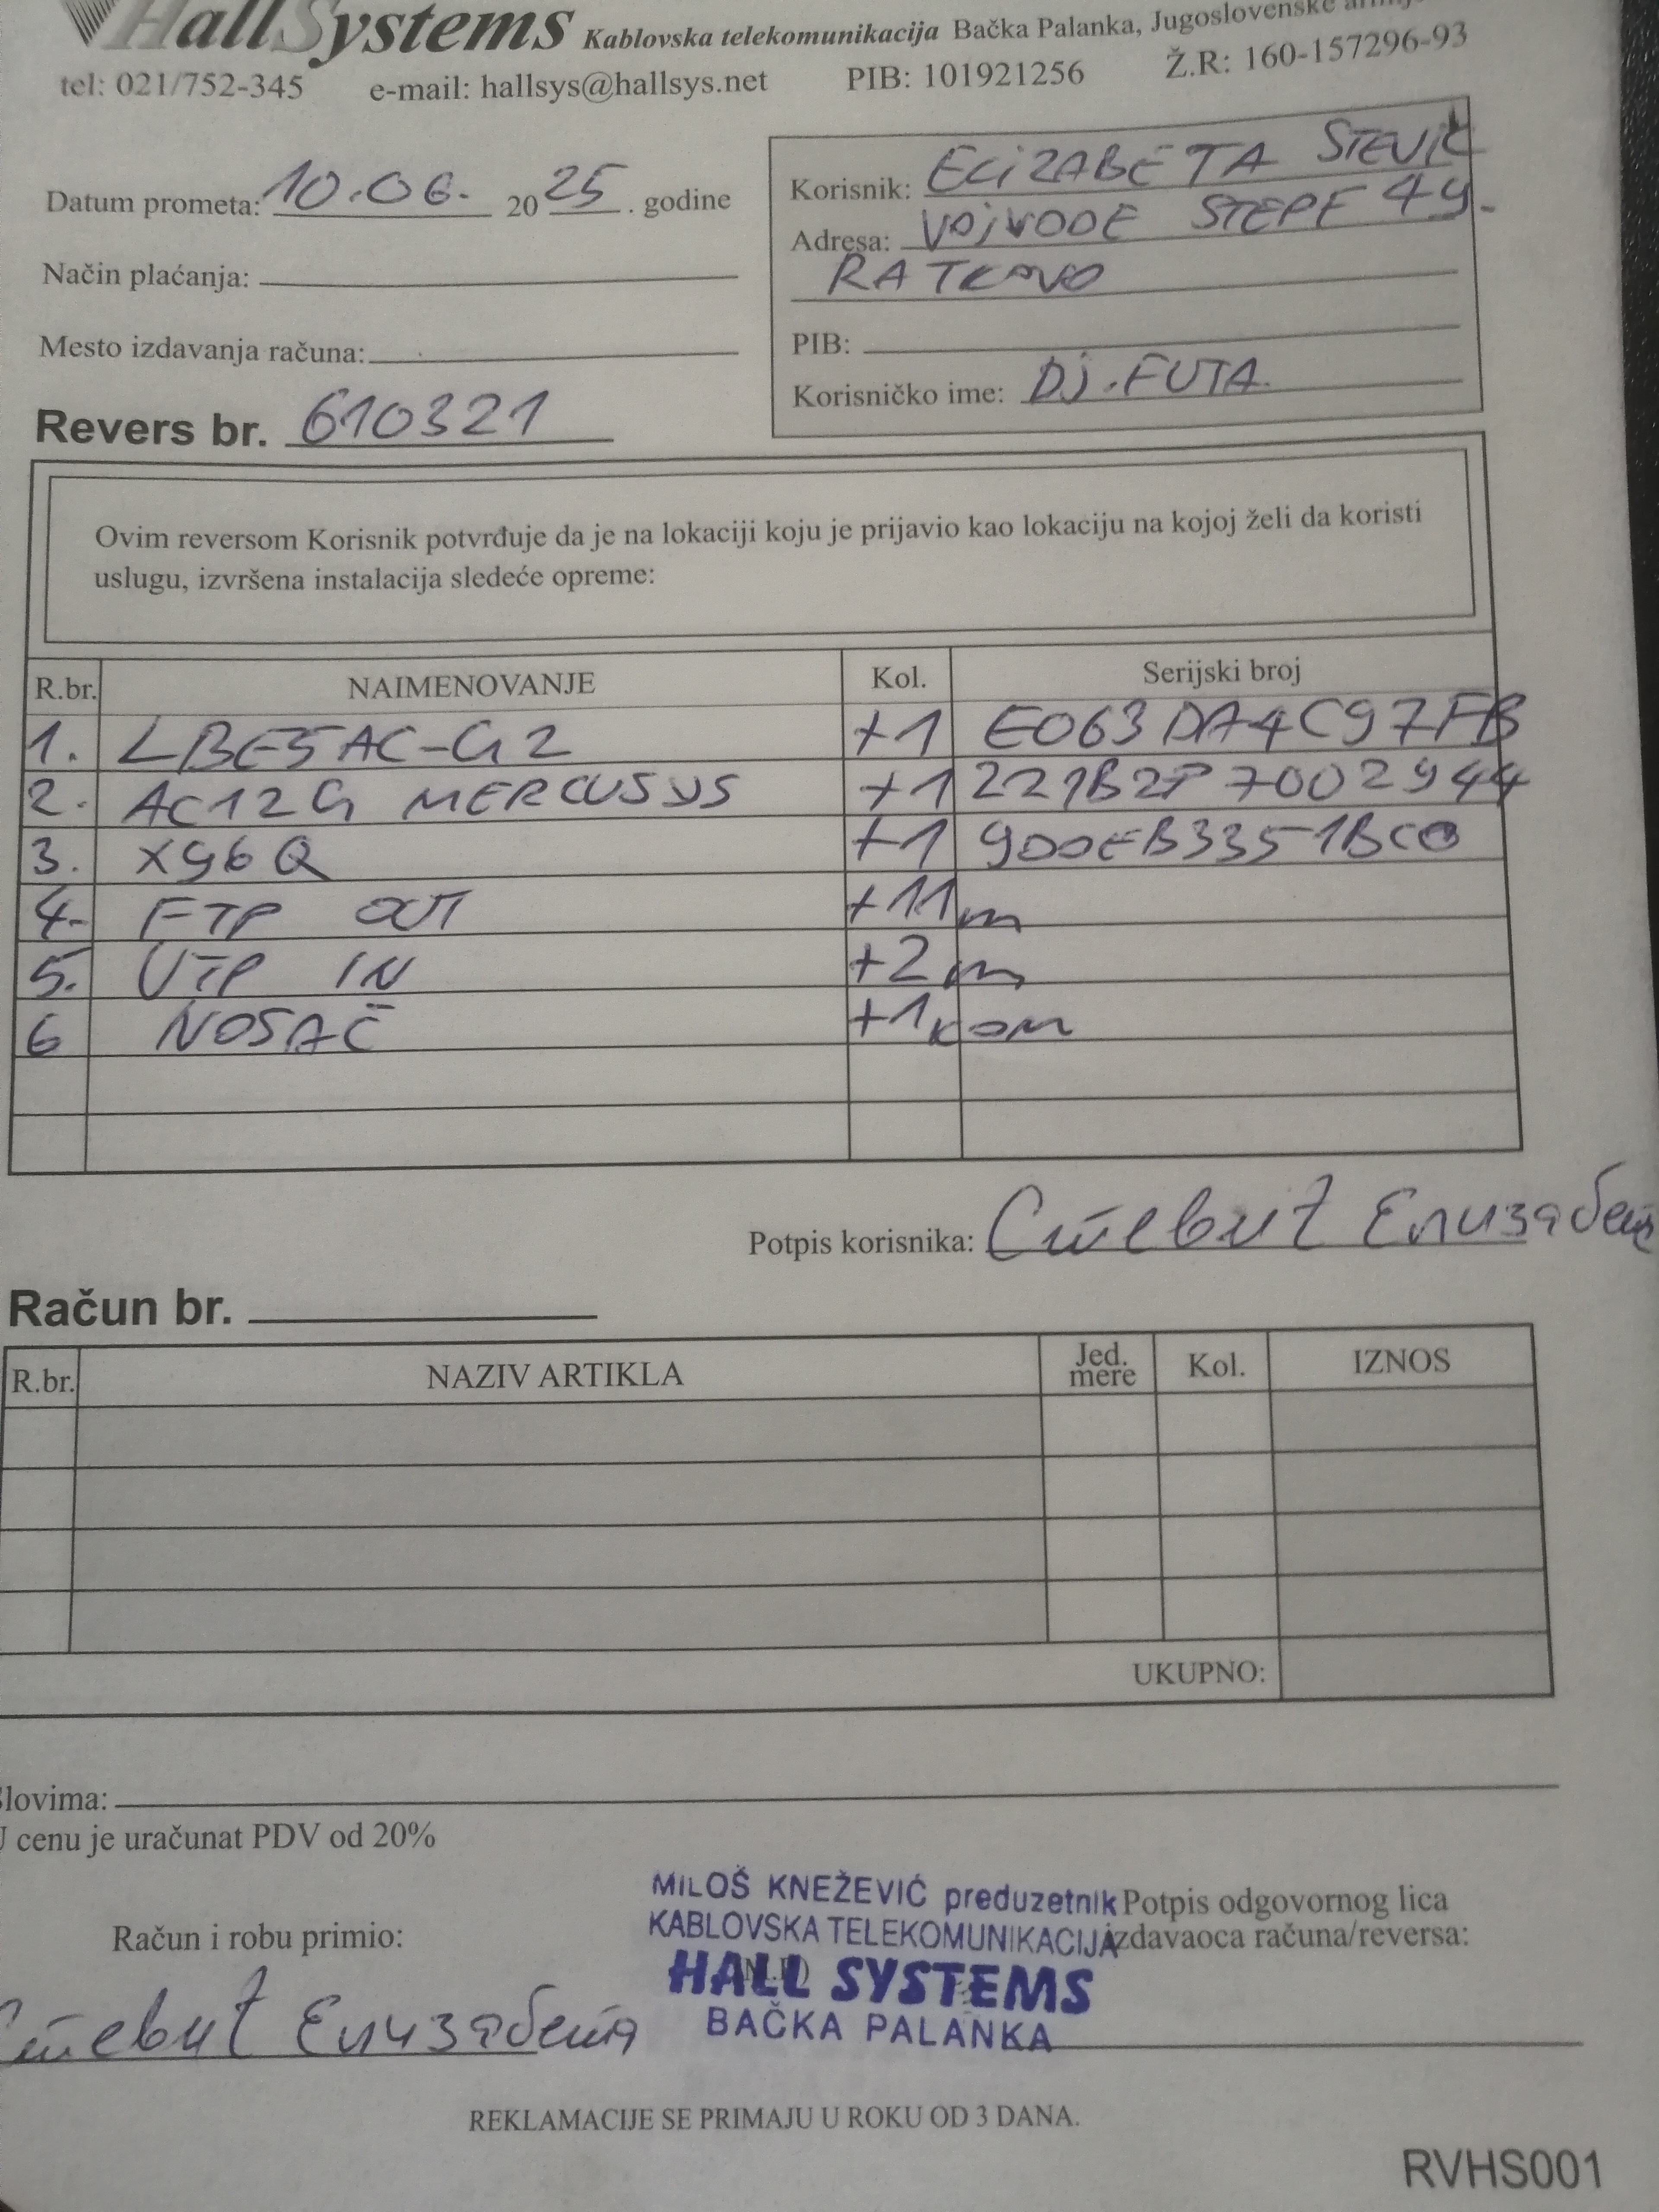 HallSystems Kablovska telekomunikacija Bačka Palanka, Jugoslovenske
tel: 021/752-345 e-mail: hallsys@hallsys.net PIB: 101921256 Ž.R: 160-157296-93
Datum prometa: 10.06. 2025. godine
Način plaćanja:
Mesto izdavanja računa:
Revers br. 610321
Korisnik: ELIZABETA STEVIĆ
Adresa: VOJVODE STEPE 49.
RATKOVO
PIB:
Korisničko ime: DJ.FUTA.
Ovim reversom Korisnik potvrđuje da je na lokaciji koju je prijavio kao lokaciju na kojoj želi da koristi
uslugu, izvršena instalacija sledeće opreme:
R.br. NAIMENOVANJE Kol. Serijski broj
1. LBE5AC-G2 +1 E063DA4C97FB
2. AC12G MERCUSYS +1 221B2P7002944
3. X96Q +1 900EB3351BC0
4. FTP OUT +11m
5. UTP IN +2m
6 NOSAČ +1kom
Potpis korisnika: Стевић Елизабета
Račun br.
R.br. NAZIV ARTIKLA Jed. mere Kol. IZNOS
UKUPNO:
Slovima:
U cenu je uračunat PDV od 20%
MILOŠ KNEŽEVIĆ preduzetnik
KABLOVSKA TELEKOMUNIKACIJA
HALL SYSTEMS
BAČKA PALANKA
Potpis odgovornog lica
izdavaoca računa/reversa:
Račun i robu primio:
Стевић Елизабета
REKLAMACIJE SE PRIMAJU U ROKU OD 3 DANA.
RVHS001